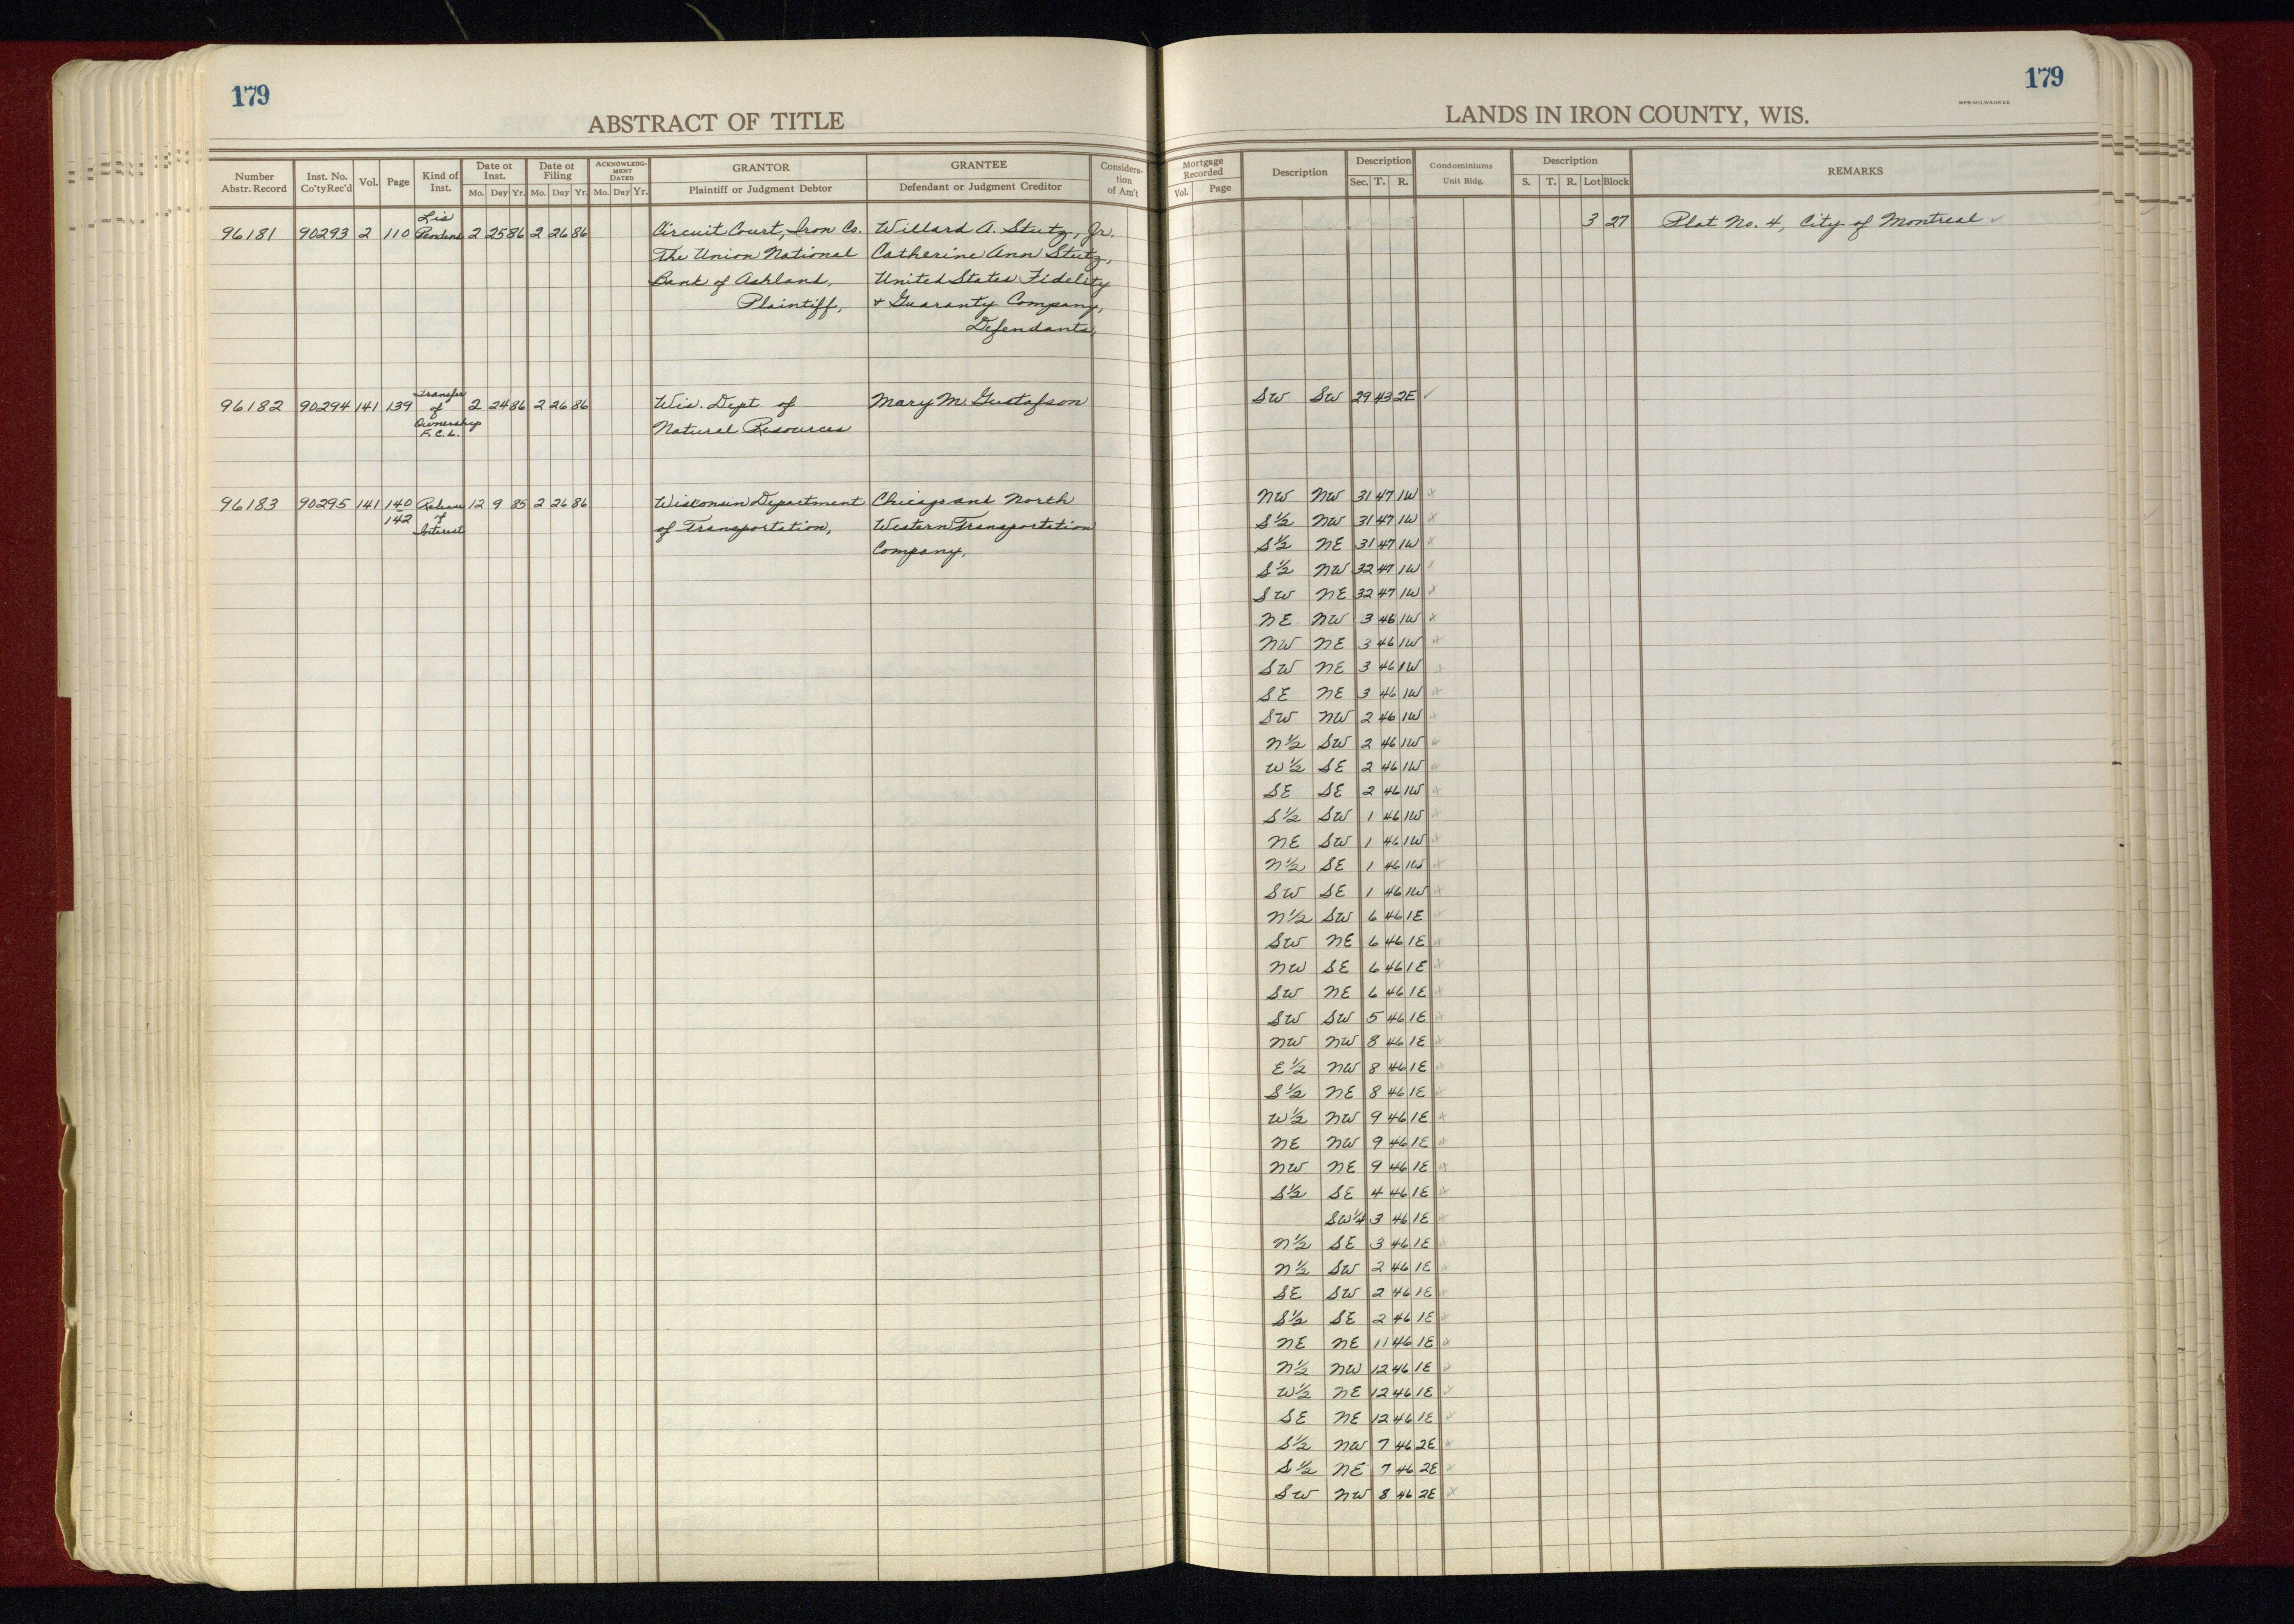 179
179
WPB-MILWAUKEE
ABSTRACT OF TITLE
LANDS IN IRON COUNTY, WIS.
Number Abstr. Record Inst. No. Co'ty Rec'd Vol. Page Kind of Inst. Date of Inst. Mo. Day Yr. Date of Filing Mo. Day Yr. ACKNOWLEDGMENT DATED Mo. Day Yr. GRANTOR Plaintiff or Judgment Debtor GRANTEE Defendant or Judgment Creditor Consideration of Am't
Mortgage Recorded Vol. Page Description Description Sec. T. R. Condominiums Unit Bldg. Description S. T. R. Lot Block REMARKS
96181 90293 2 110 Lis Pendens 2 25 86 2 26 86 Circuit Court, Iron Co. Willard A. Stutz, Jr. 3 27 Plat No. 4, City of Montreal ✓
The Union National Catherine Ann Stutz,
Bank of Ashland, United States Fidelity
Plaintiff, + Guaranty Company,
Defendants,
96182 90294 141 139 Transfer of Ownership F.C.L. 2 24 86 2 26 86 Wis. Dept. of Mary M. Gustafson SW SW 29 43 2E ✓
Natural Resources
96183 90295 141 140-142 Release of Interest 12 9 85 2 26 86 Wisconsin Department Chicago and North NW NW 31 47 1W
of Transportation, Western Transportation S½ NW 31 47 1W
Company, S½ NE 31 47 1W
S½ NW 32 47 1W
SW NE 32 47 1W
NE NW 3 46 1W
NW NE 3 46 1W
SW NE 3 46 1W
SE NE 3 46 1W
SW NW 2 46 1W
N½ SW 2 46 1W
W½ SE 2 46 1W
SE SE 2 46 1W
S½ SW 1 46 1W
NE SW 1 46 1W
N½ SE 1 46 1W
SW SE 1 46 1W
N½ SW 6 46 1E
SW NE 6 46 1E
NW SE 6 46 1E
SW NE 6 46 1E
SW SW 5 46 1E
NW NW 8 46 1E
E½ NW 8 46 1E
S½ NE 8 46 1E
W½ NW 9 46 1E
NE NW 9 46 1E
NW NE 9 46 1E
S½ SE 4 46 1E
SW¼ 3 46 1E
N½ SE 3 46 1E
N½ SW 2 46 1E
SE SW 2 46 1E
S½ SE 2 46 1E
NE NE 11 46 1E
N½ NW 12 46 1E
W½ NE 12 46 1E
SE NE 12 46 1E
S½ NW 7 46 2E
S½ NE 7 46 2E
SW NW 8 46 2E